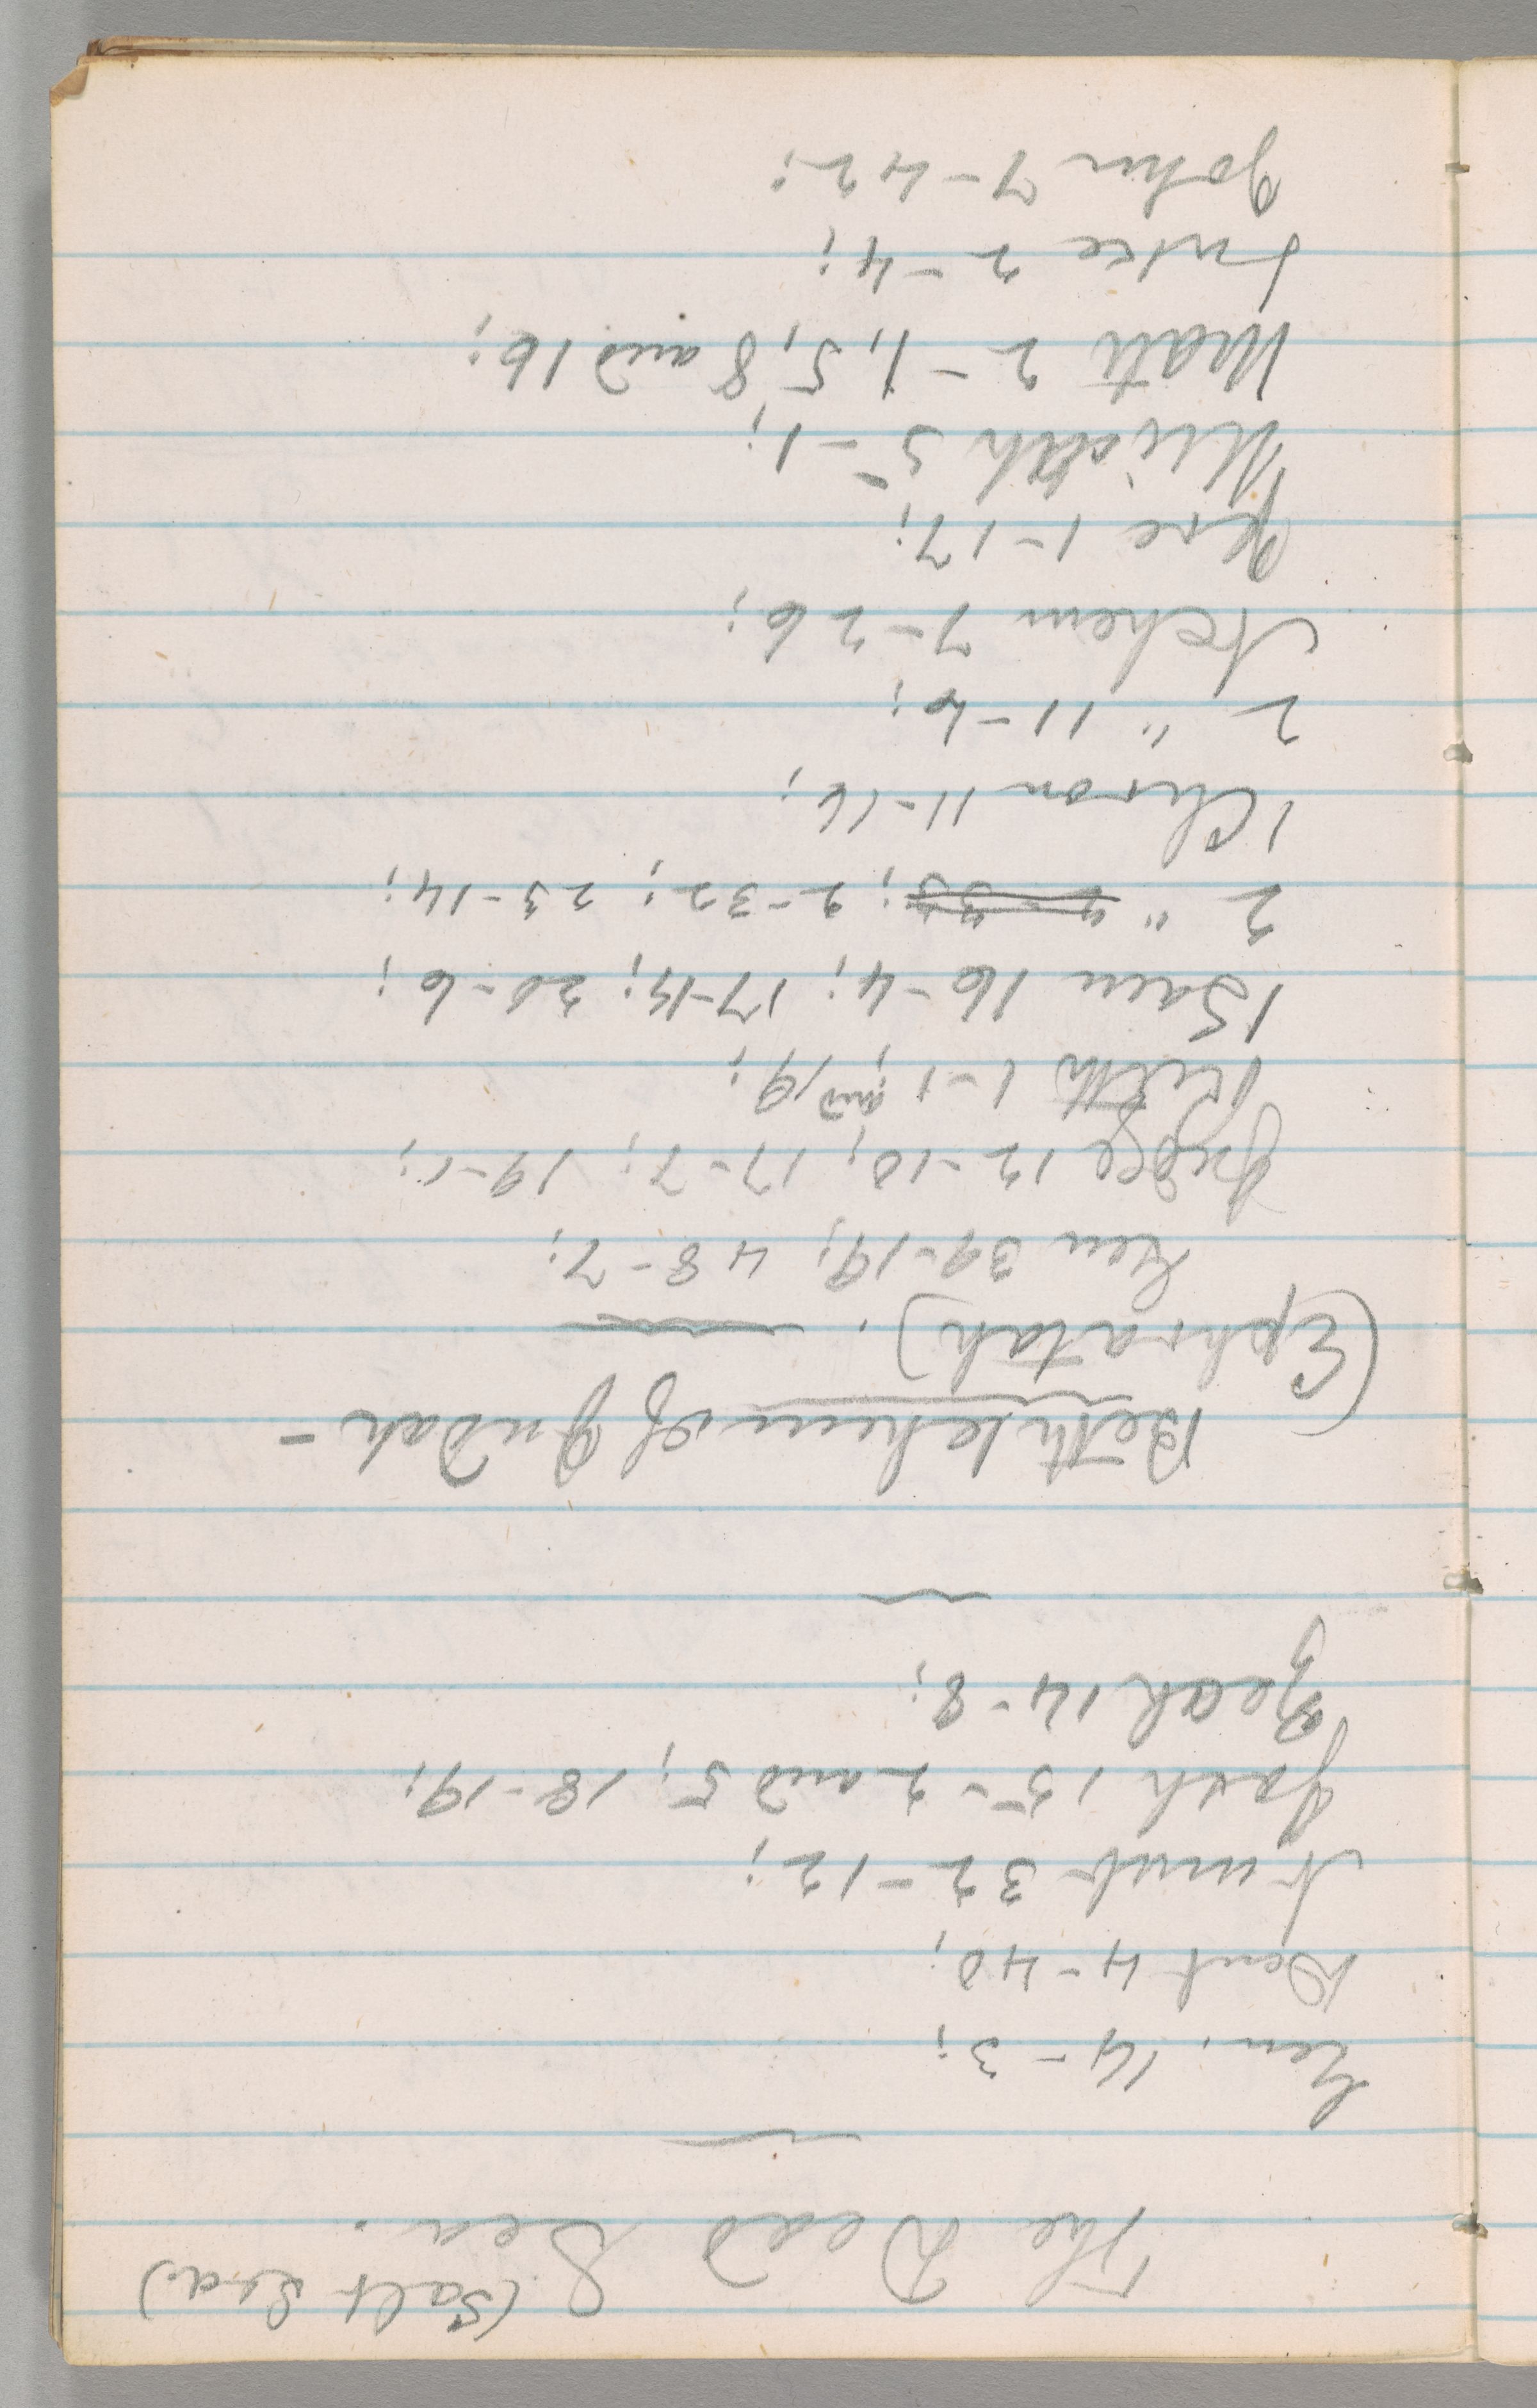 (Salt Sea.)
The Dead Sea.
Gen. 14-3;
Deut 4-40;
Numb 32-12;
Josh 15-2 and 5; 18-19;
Zech 14-8;
Bethlehem of Judah-
(Ephratah).
Gen 39-19; 48-7;
Judge 12-10; 17-7; 19-1;
Ruth 1-1; and 19;
1 Sam 16-4; 17-15; 20-6;
2 " 2-33; 2-32; 23-14;
1 Chron 11-16;
2 " 11-6;
Nehem 7-26;
Jere 1-17;
Micah 5-1;
Matt 2-1, 5, 8 and 16;
Luke 2-4;
John 7-42;